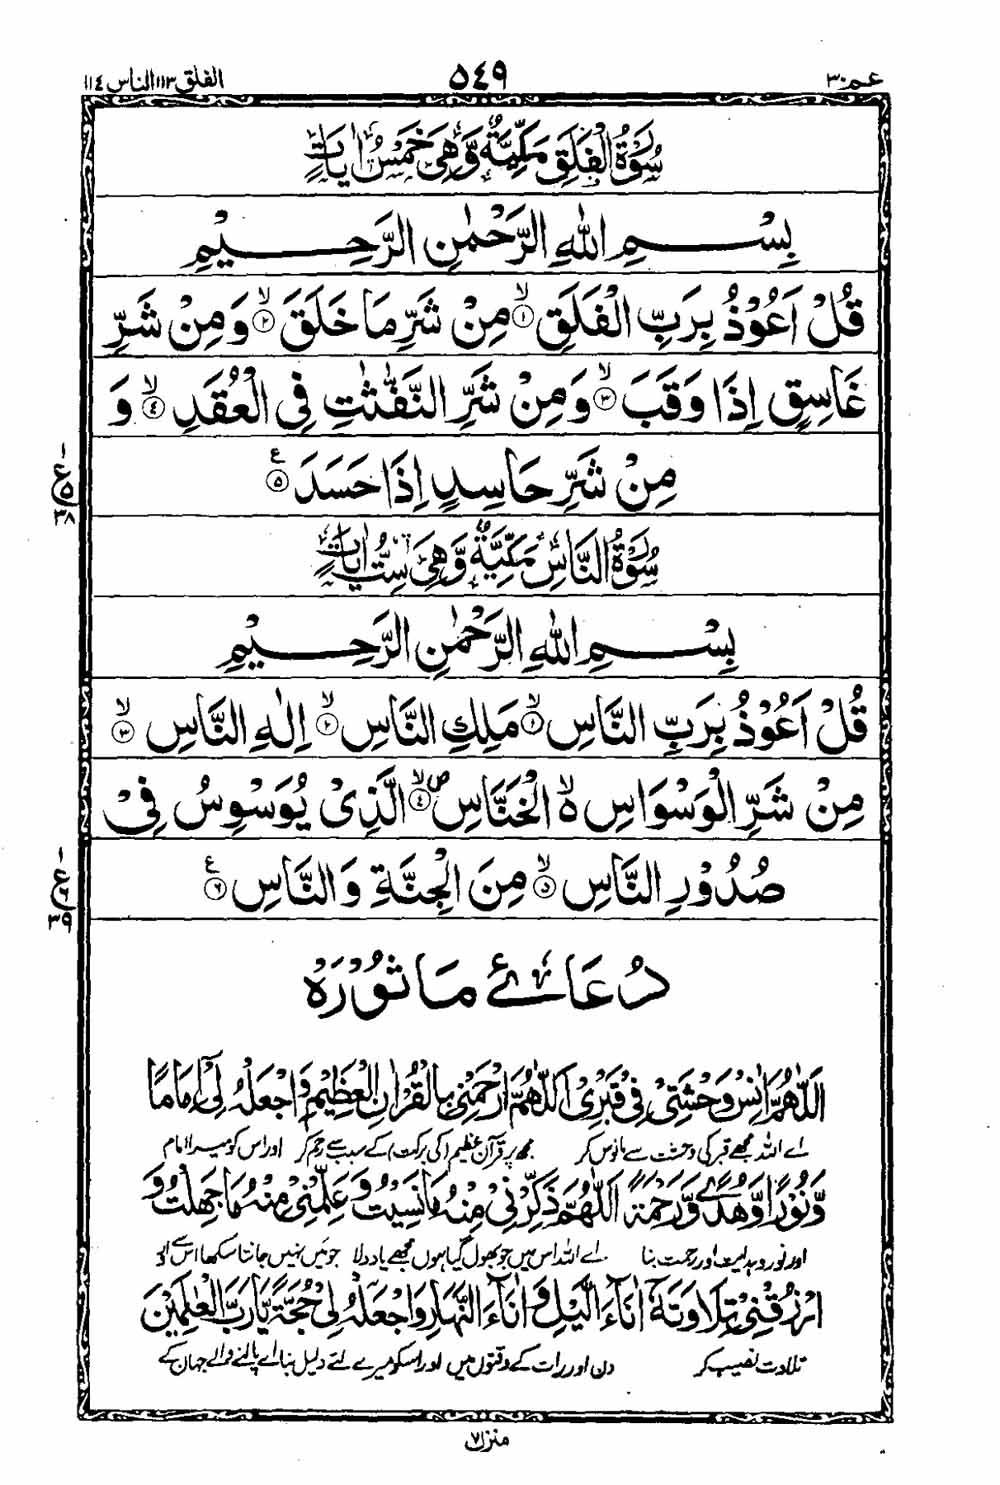 عم ٣٠
٥٤٩
الفلق ١١٣ الناس ١١٤
سُوْرَةُ الْفَلَقِ مَكِّيَّةٌ وَّهِيَ خَمْسُ اٰيَاتٍ
بِسْمِ اللهِ الرَّحْمٰنِ الرَّحِيْمِ
قُلْ اَعُوْذُ بِرَبِّ الْفَلَقِ ۙ‏﴿۱﴾ مِنْ شَرِّ مَا خَلَقَ ۙ‏﴿۲﴾ وَمِنْ شَرِّ
غَاسِقٍ اِذَا وَقَبَ ۙ‏﴿۳﴾ وَمِنْ شَرِّ النَّفّٰثٰتِ فِى الْعُقَدِ ۙ‏﴿٤﴾ وَ
مِنْ شَرِّ حَاسِدٍ اِذَا حَسَدَ ﴿۵﴾ ع
١
ع ٥
٣٨
سُوْرَةُ النَّاسِ مَكِّيَّةٌ وَّهِيَ سِتُّ اٰيَاتٍ
بِسْمِ اللهِ الرَّحْمٰنِ الرَّحِيْمِ
قُلْ اَعُوْذُ بِرَبِّ النَّاسِ ۙ‏﴿۱﴾ مَلِكِ النَّاسِ ۙ‏﴿۲﴾ اِلٰهِ النَّاسِ ۙ‏﴿۳﴾
مِنْ شَرِّ الْوَسْوَاسِ ۵ۙ الْخَنَّاسِ ۪ۙ‏﴿٤﴾ الَّذِىْ يُوَسْوِسُ فِىْ
صُدُوْرِ النَّاسِ ۙ‏﴿۵﴾ مِنَ الْجِنَّةِ وَ النَّاسِ ﴿۶﴾ ع
١
ع ٦
٣٩
دُعَائے مَاثُوْرَهْ
اَللّٰهُمَّ اٰنِسْ وَحْشَتِيْ فِيْ قَبْرِيْ اَللّٰهُمَّ ارْحَمْنِيْ بِالْقُرْاٰنِ الْعَظِيْمِ وَاجْعَلْهُ لِيْ اِمَامًا
اے اللہ مجھے قبر کی وحشت سے مانوس کر مجھ پر قرآن عظیم (کی برکت) کے سبب سے رحم کر اور اس کو میرا امام
وَّنُوْرًا وَّهُدًى وَّرَحْمَةً اَللّٰهُمَّ ذَكِّرْنِيْ مِنْهُ مَا نَسِيْتُ وَعَلِّمْنِيْ مِنْهُ مَا جَهِلْتُ وَ
اور نور و ہدایت اور رحمت بنا اے اللہ اس میں جو بھول گیا ہوں مجھے یاد دلا جو میں نہیں جانتا سکھا اس کی
ارْزُقْنِيْ تِلَاوَتَهٗ اٰنَآءَ الَّيْلِ وَاٰنَآءَ النَّهَارِ وَاجْعَلْهُ لِيْ حُجَّةً يَّا رَبَّ الْعٰلَمِيْنَ
تلاوت نصیب کر دن اور رات کے وقتوں میں اور اسکو میرے لئے دلیل بنا اے پالنے والے جہان کے
منزل ٧